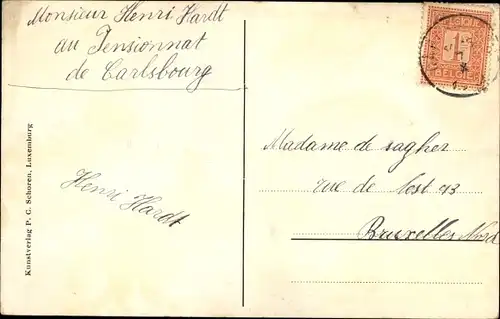 Monsieur Henri Hardt
au Pensionnat
de Carlsbourg
Henri Hardt
Kunstverlag P. C. Schoren, Luxemburg
BELGIQUE
1
BELGIË
Madame de sagher
rue de lost 43
Bruxelles Nord